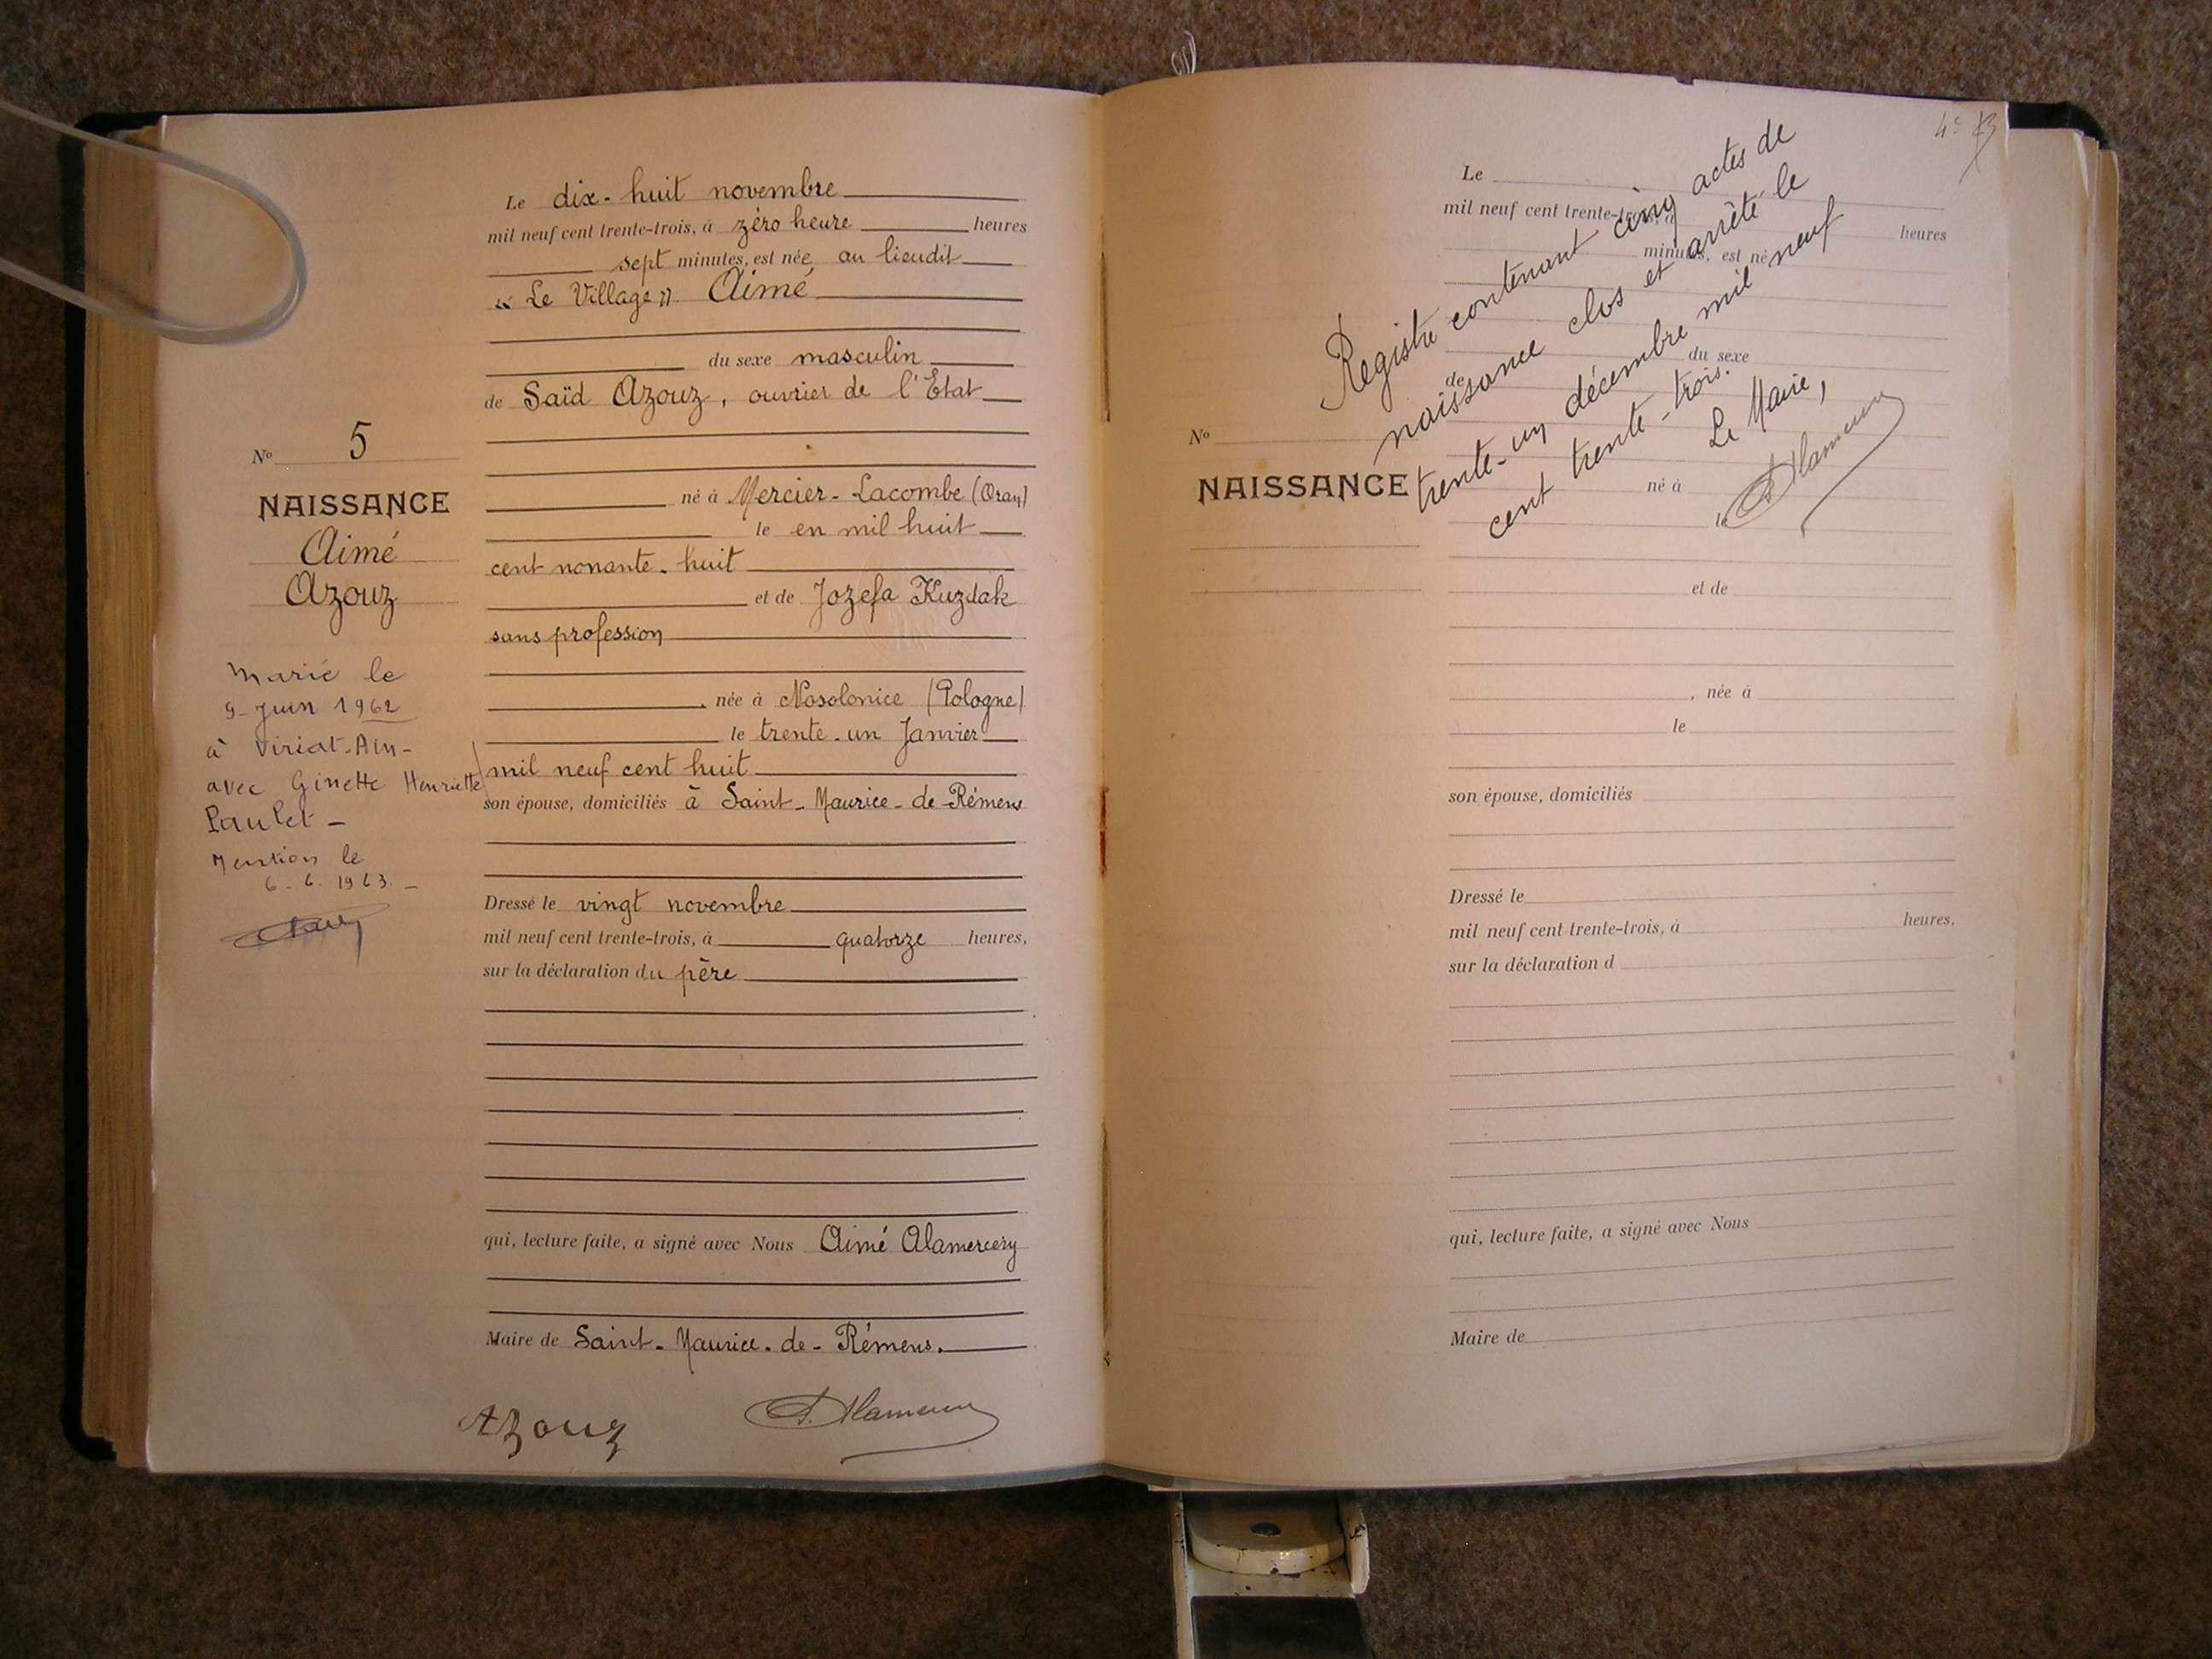 Le dix-huit novembre
mil neuf cent trente-trois, à zéro heure heures
sept minutes, est née au lieudit
« Le Village » Aimé
du sexe masculin
de Saïd Azouz, ouvrier de l'Etat
N° 5
NAISSANCE
Aimé
Azouz
né à Mercier-Lacombe (Oran)
le en mil huit
cent nonante-huit
et de Jozefa Kuzdak
sans profession
, née à Nosolonice (Pologne)
le trente-un Janvier
mil neuf cent huit
son épouse, domiciliés à Saint-Maurice-de-Rémens
Marié le
9 Juin 1962
à Viriat-Ain-
avec Ginette Henriette
Paulet -
Mention le
6.6.1963.-
Dressé le vingt novembre
mil neuf cent trente-trois, à quatorze heures,
sur la déclaration du père
qui, lecture faite, a signé avec Nous Aimé Alamercery
Maire de Saint-Maurice-de-Rémens.
Azouz
Registre contenant cinq actes de
naissance clos et arrêté le
trente-un décembre mil neuf
cent trente-trois.
Le Maire,
Le
mil neuf cent trente-trois, à
heures
minutes, est né
du sexe
de
N°
NAISSANCE
né à
le
et de
, née à
le
son épouse, domiciliés
Dressé le
mil neuf cent trente-trois, à heures,
sur la déclaration d
qui, lecture faite, a signé avec Nous
Maire de